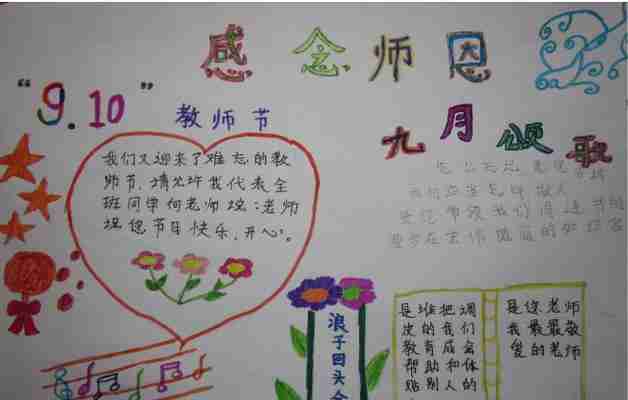 感念师恩
“9.10”
教师节
九月颂歌
我们又迎来了难忘的教
师节,请允许我代表全
班同学向老师说:老师
祝您节日快乐,开心。
带领我们
浪子回头
是谁把调
皮的我们
教育成会
帮助和体
贴别人的
是您老师
我最最敬
爱的老师